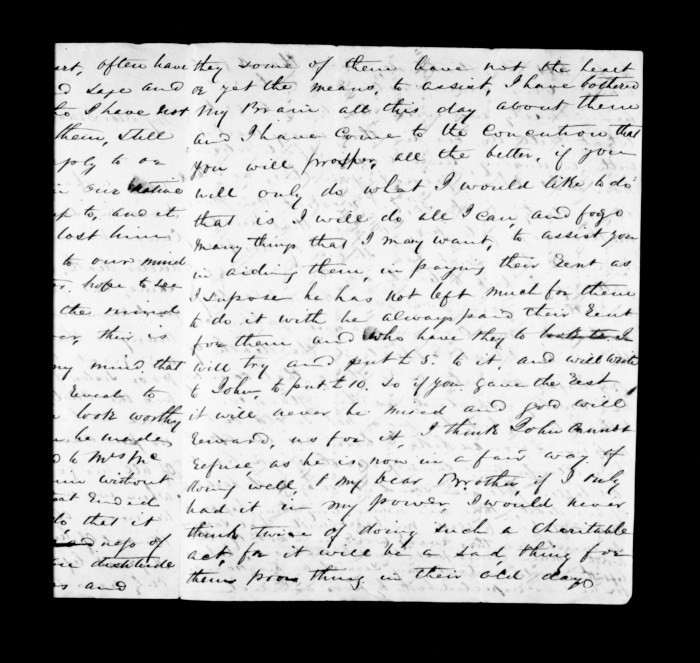 art, often have
d safe and
ho I have not
them, still
pply to or
in our native
up to, and it
lost him
to our mind
hope to see
the mind
over this is
my mind that
reveal to
look worthy
he made
d to Mrs Mc
him without
that ended
do that it
ness of
destitude
s and
they some of them have not the heart
or yet the means, to assist, I have bothered
my Brain all this day about them
and I have Come to the Concution that
you will prosper, all the better, if you
will only do what I would like to do
that is I will do all I can, and fogo
many things that I may want, to assist you
in aiding them, in paying their Rent as
I supose he has not left much for them
to do it with he always paid their Rent
for them and who have they to look to. I
will try and put £5. to it, and will write
to John, to put £10. So if you gave the Rest
it will never be mised and god will
Reward, us for it, I think John Cannot
Refuse, as he is now in a fair way of
doing well, O my Dear Brother, if I only
had it in my power, I would never
think twice of doing such a Charitable
act, for it will be a sad thing for
them poor thing in their old days